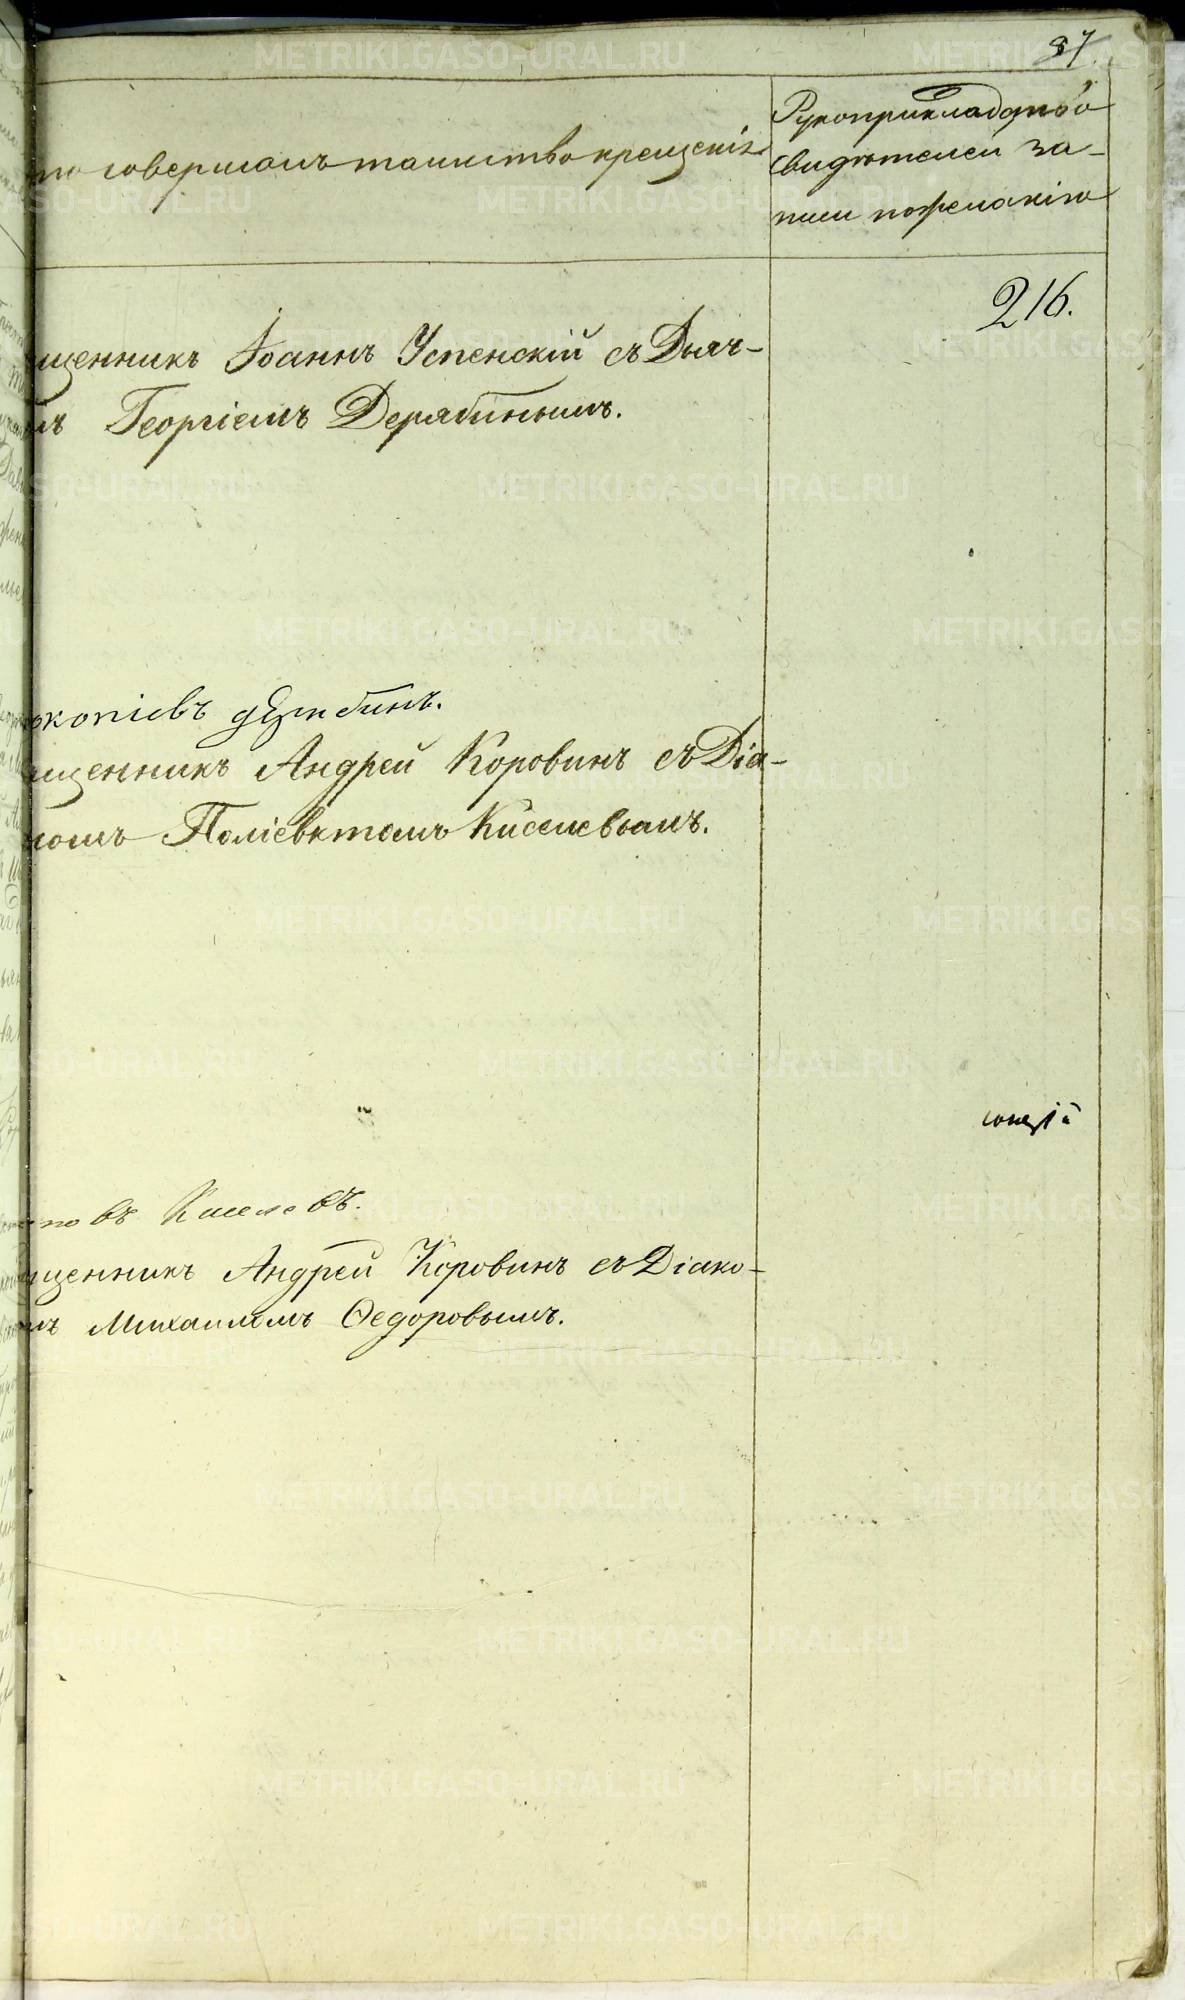 87
то совершалъ таинство крещенія
Рукоприкладство
свидѣтелей за-
писи по желанію
216.
щенникъ Іоаннъ Успенскій съ Дьяч-
мъ Георгіемъ Дерябинымъ.
окопіевъ
щенникъ Андрей Коровинъ съ Діа-
номъ Поліевктомъ Киселевымъ.
повъ Киселевъ.
щенникъ Андрей Коровинъ съ Діако-
мъ Михаиломъ Ѳедоровымъ.
METRIKI.GASO-URAL.RU